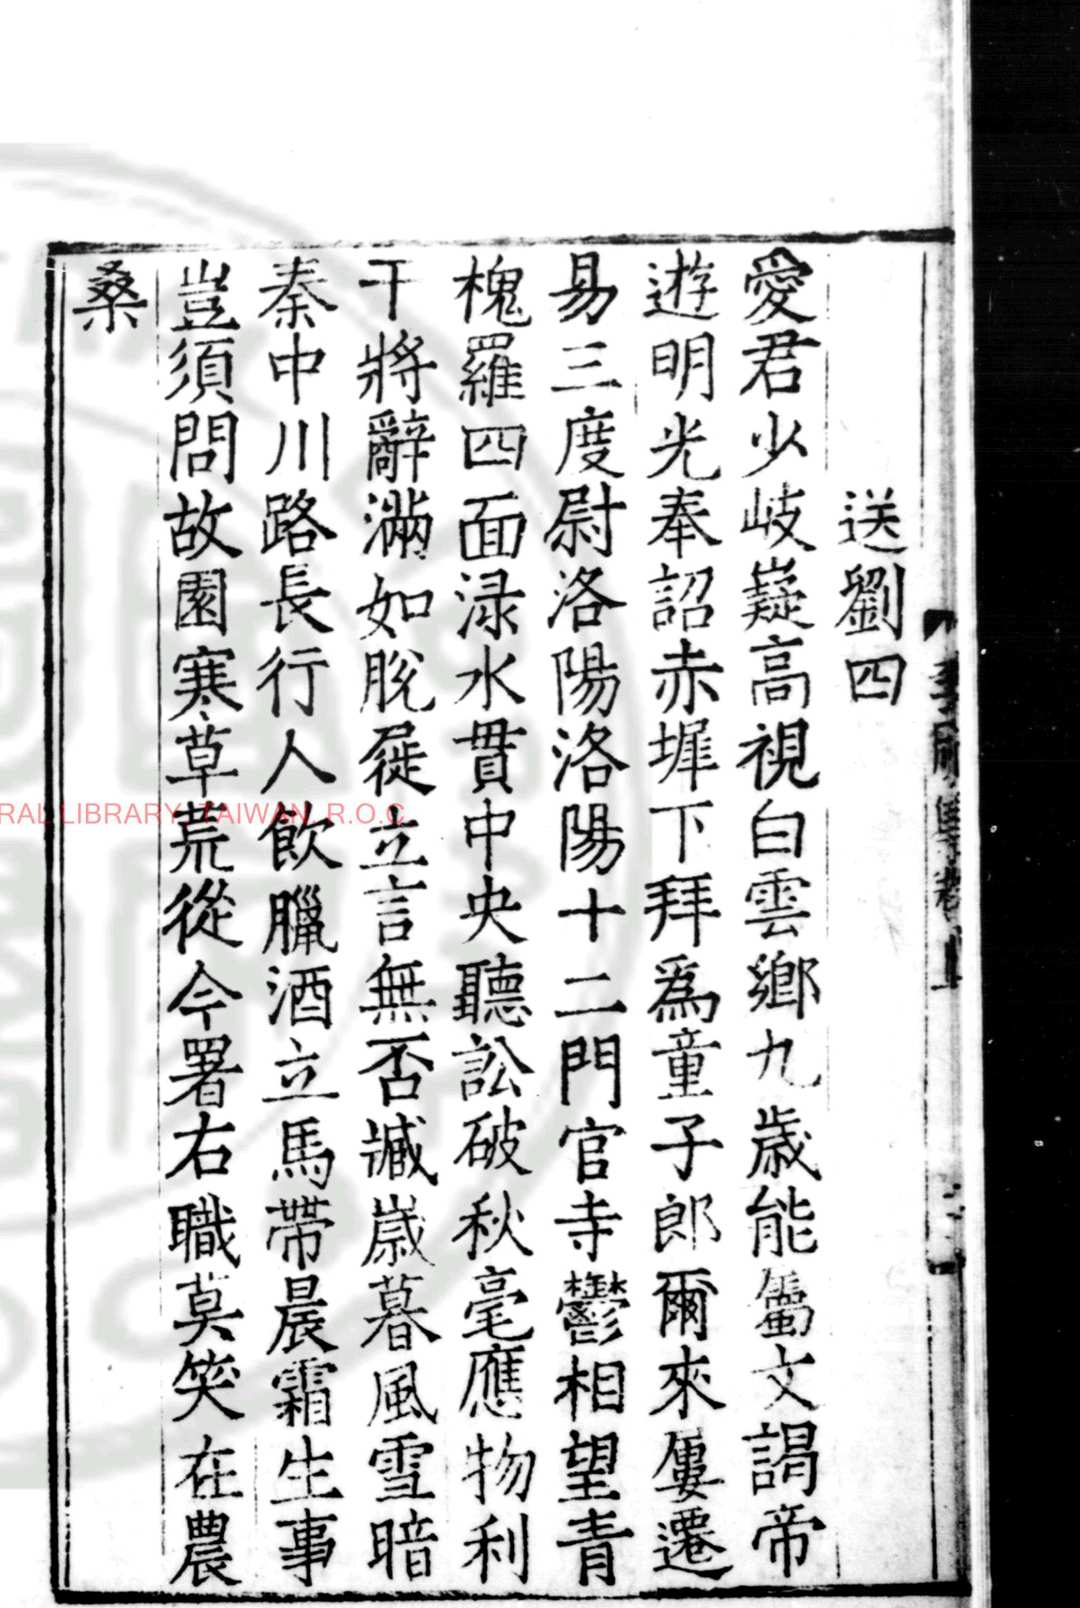 送劉四
愛君少岐嶷高視白雲鄉九歲能屬文謁帝
遊明光奉詔赤墀下拜爲童子郎爾來屢遷
易三度尉洛陽洛陽十二門官寺鬱相望青
槐羅四面淥水貫中央聽訟破秋毫應物利
干將辭滿如脫屣立言無否臧歲暮風雪暗
秦中川路長行人飲臘酒立馬帶晨霜生事
豈須問故園寒草荒從今署右職莫笑在農
桑
李頎集卷上
RAL LIBRARY, TAIWAN, R.O.C.